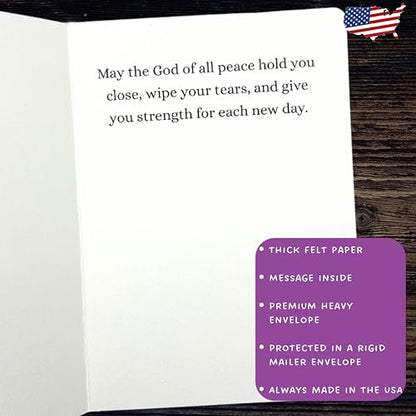 May the God of all peace hold you
close, wipe your tears, and give
you strength for each new day.
• THICK FELT PAPER
• MESSAGE INSIDE
• PREMIUM HEAVY
ENVELOPE
• PROTECTED IN A RIGID
MAILER ENVELOPE
• ALWAYS MADE IN THE USA